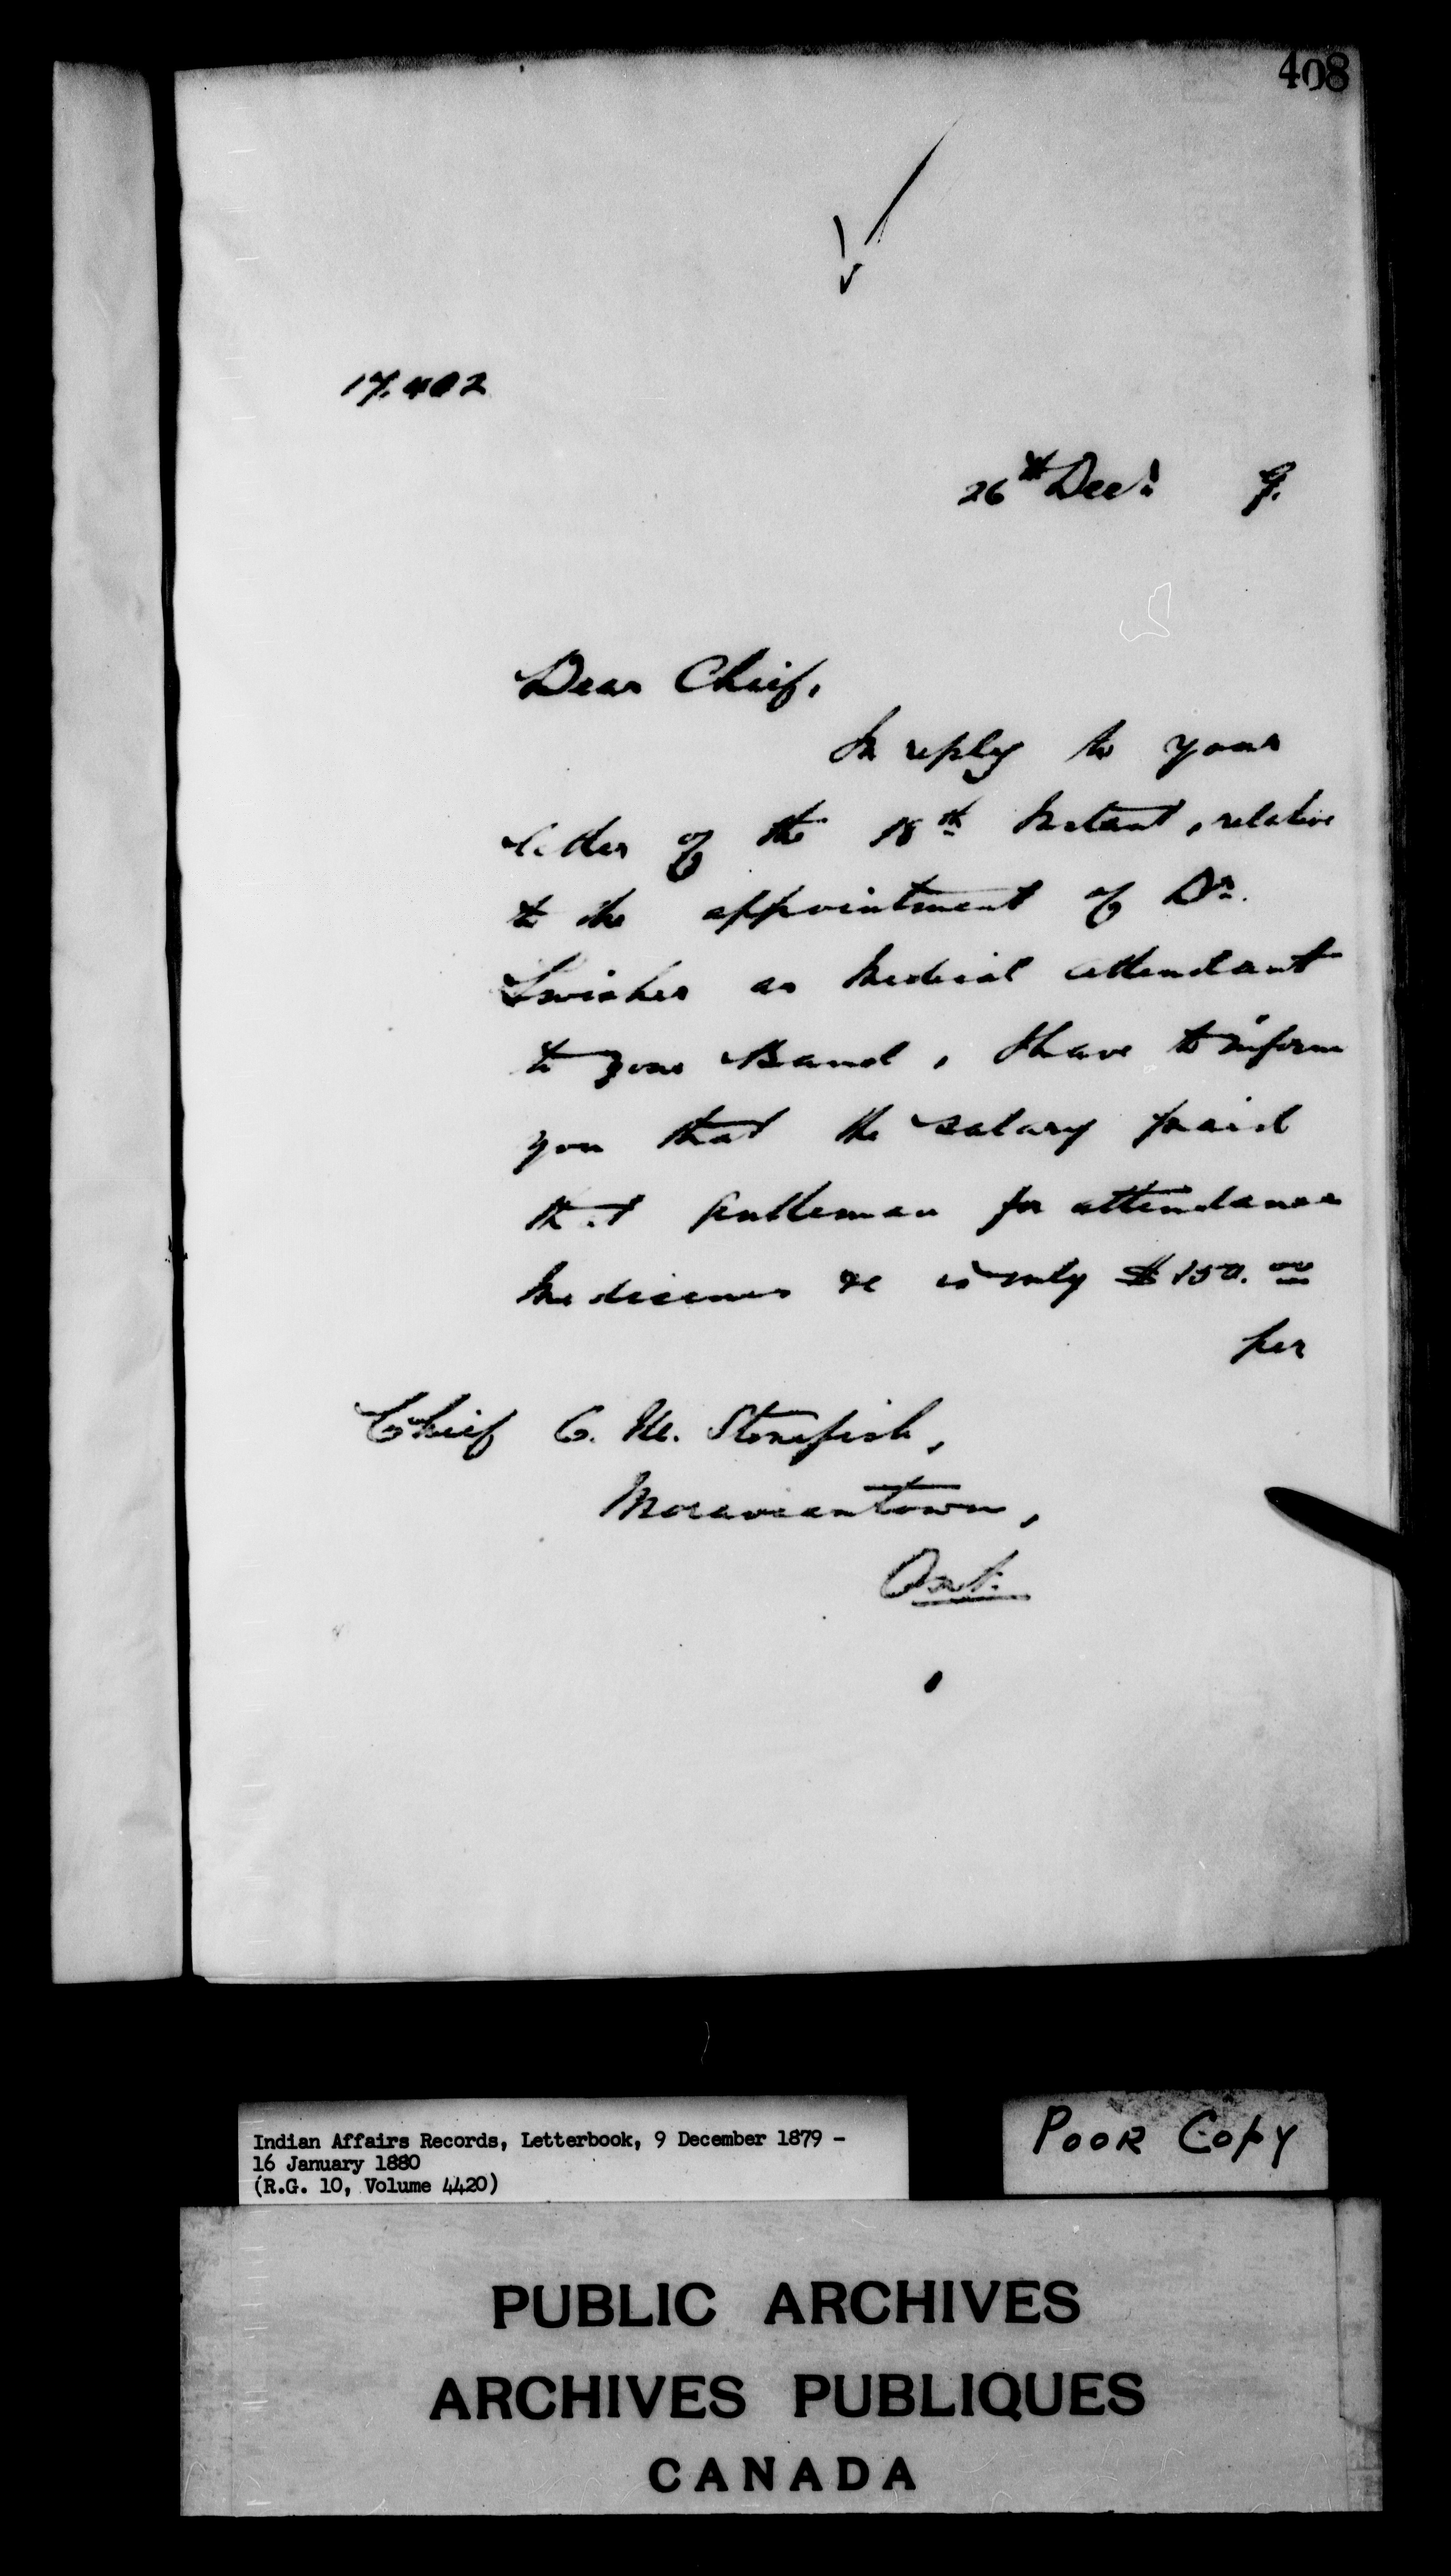 408
17.402
26th Decr. 9.
Dear Chief,
In reply to your
letter of the 18th Instant, relative
to the appointment of Dr.
as Medical attendant
to your Band, I have to inform
you that the salary paid
that Gentleman for attendance
Medicines &c is only $150.00
per
Chief C. M. Stonefish,
Moraviantown,
Ont.
Indian Affairs Records, Letterbook, 9 December 1879 -
16 January 1880
(R.G. 10, Volume 4420)
POOR COPY
PUBLIC ARCHIVES
ARCHIVES PUBLIQUES
CANADA